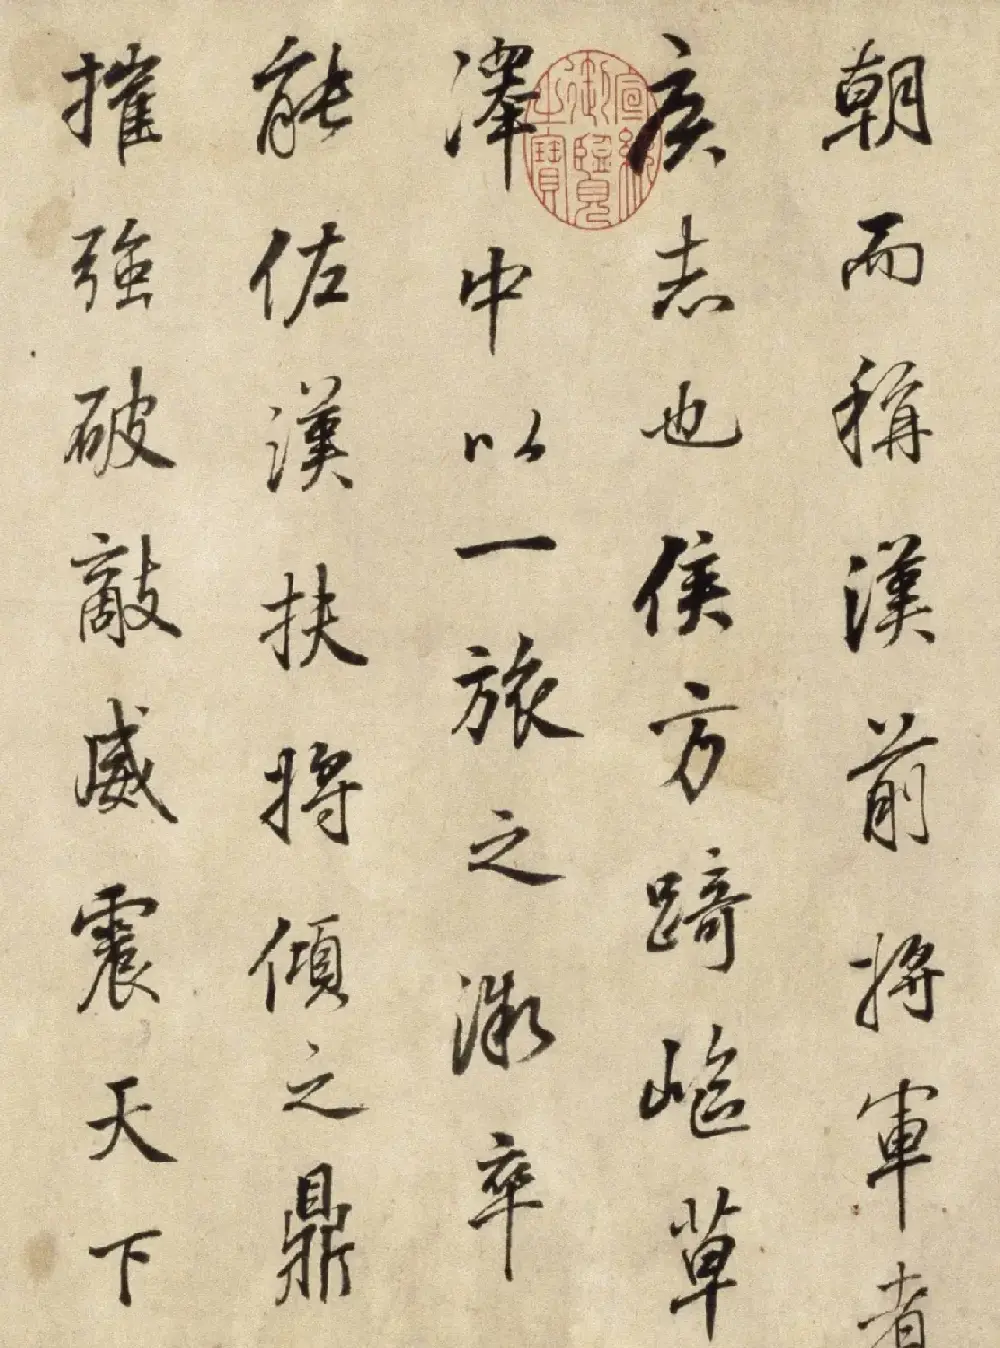 朝而稱漢前將軍者
矦志也侯方踦嶇草
澤中以一旅之微卒
能佐漢扶將傾之鼎
摧強破敵威震天下
宣統御覽之寶